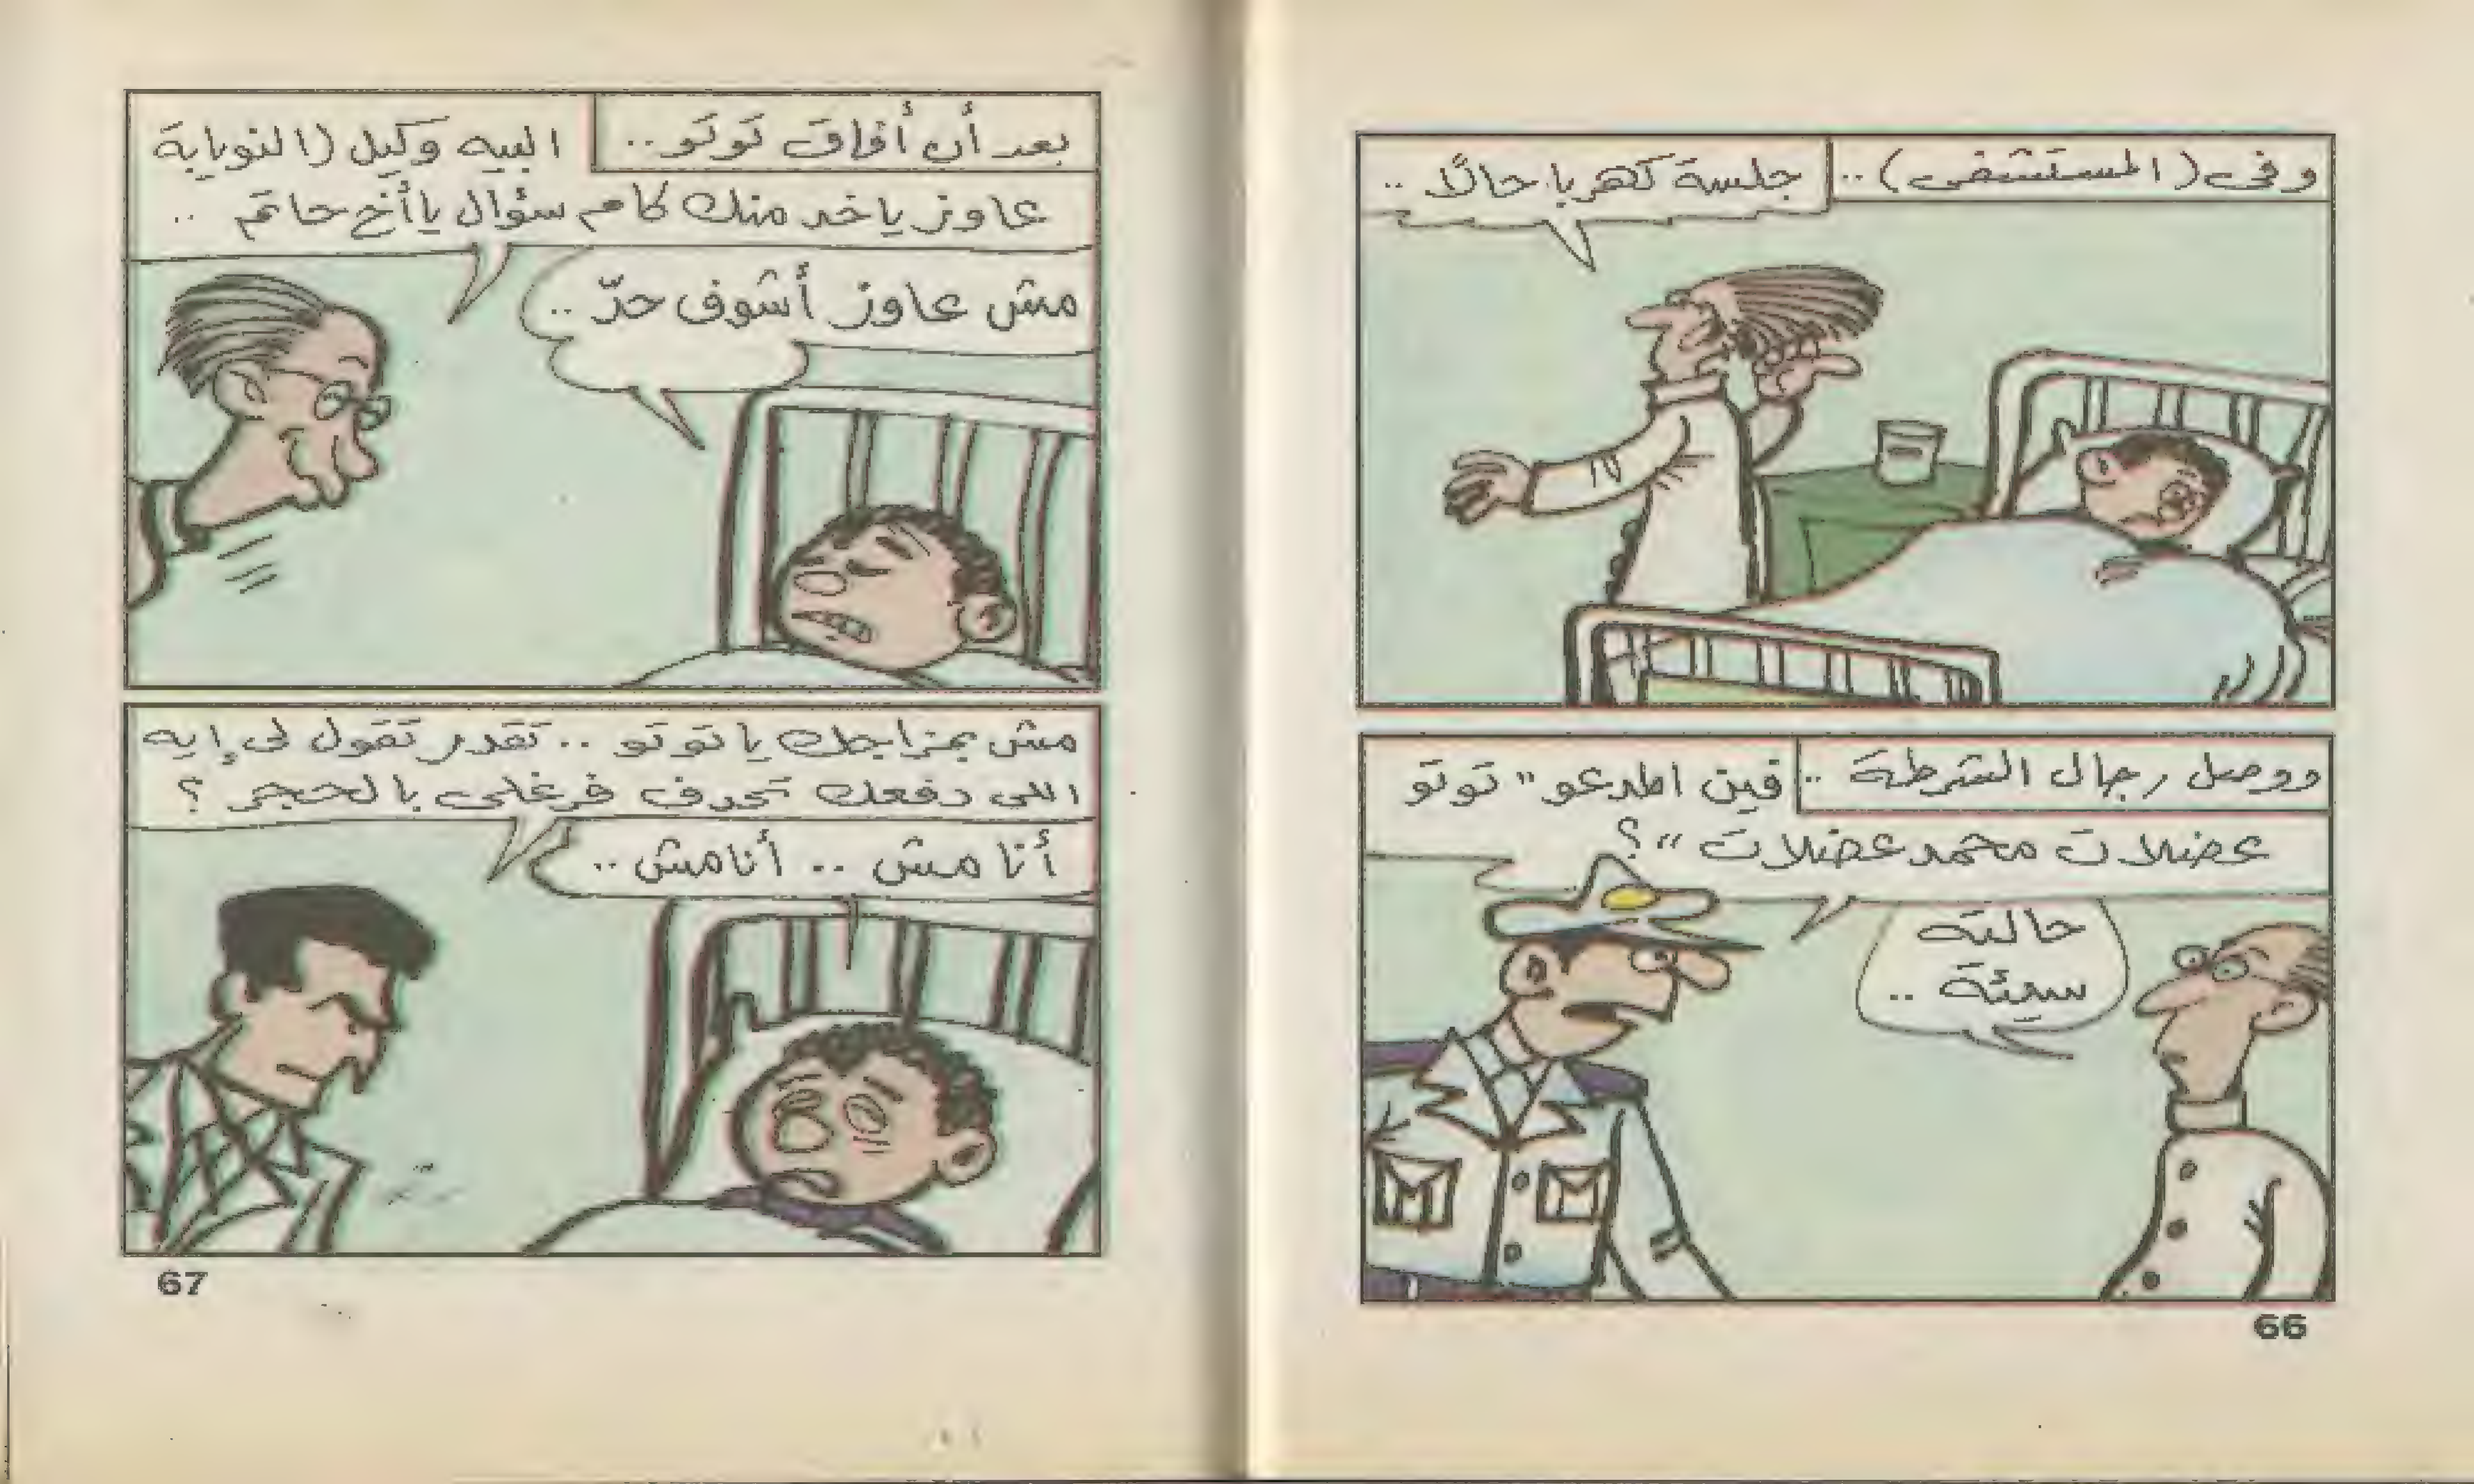 وفى (المستشفى) ..
جلسة كهربا حالًا ..
ووصل رجال الشرطة ..
فين المدعو "توتو
عضلات محمد عضلات"؟
حالته
سيئة ..
66
بعد أن أفاق توتو ..
البيه وكيل (النويابة
عاوز ياخد منك كام سؤال يا أخ حاتم ..
مش عاوز أشوف حدّ ..
مش بمزاجك يا توتو .. تقدر تقول لى إيه
اللى دفعك تحدف فرغلى بالحجر ؟
أنا مش .. أنا مش ..
67